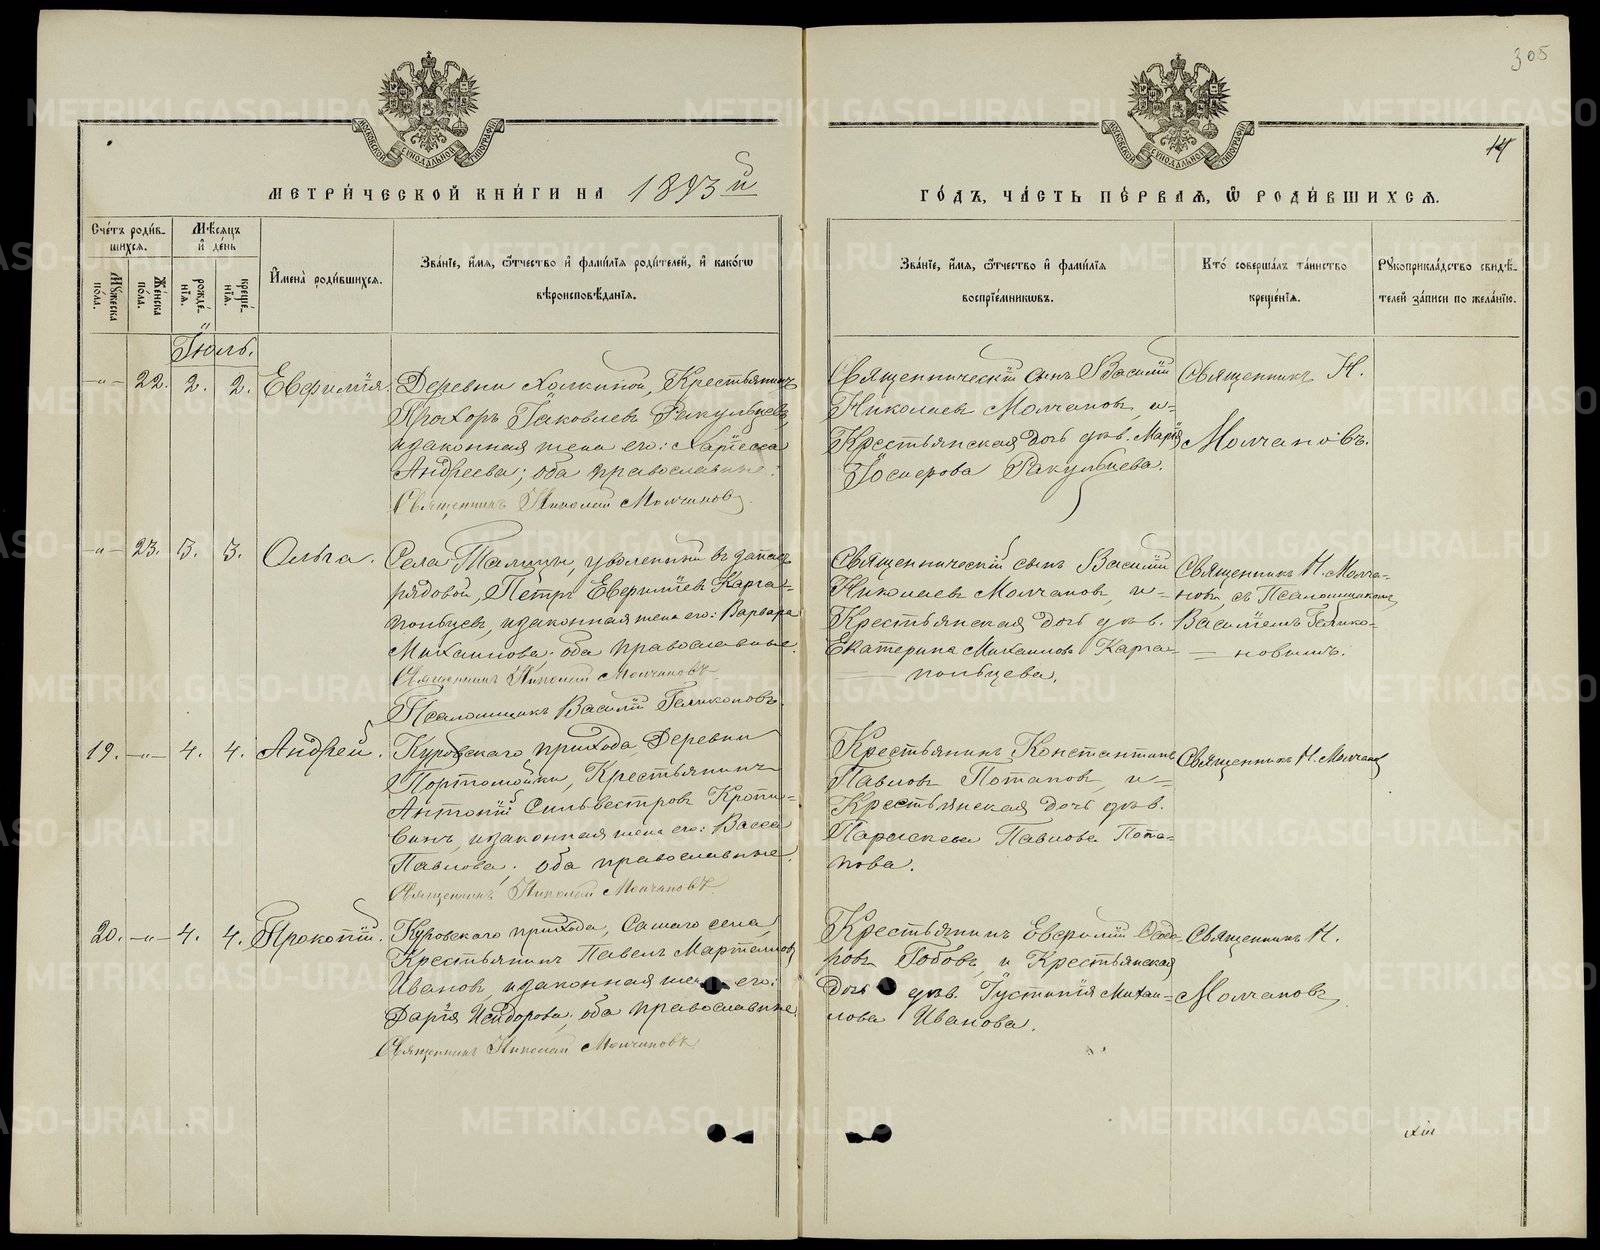 305
14
МОСКОВСКОЙ СУНОДАЛЬНОЙ ТИПОГРАФІИ
МОСКОВСКОЙ СУНОДАЛЬНОЙ ТИПОГРАФІИ
МЕТРИ́ЧЕСКОЙ КНИ́ГИ НА 1893й
ГО́ДЪ, ЧА́СТЬ ПЕ́РВАѦ, Ѿ РОДИ́ВШИХСѦ.
Сче́тъ роди́в-
шихся.
Мѣ́сяцъ
и де́нь
Му́жеска
по́ла.
Же́нска
по́ла.
рожде́-
нія.
креще́-
нія.
Имена̀ роди́вшихся.
Зва́ніе, и́мя, ѻ́тчество и фами́лія роди́телей, и како́гѡ
вѣроисповѣ́данія.
Зва́ніе, и́мя, ѻ́тчество и фами́лія
воспріе́мниковъ.
Кто̀ соверша́лъ та́инство
креще́нія.
Рукоприкла́дство свидѣ́-
телей за́писи по жела́нію.
Іюль.
-"- 22. 2. 2. Евфимія.
Деревни Холкиной, Крестьянинъ
Прохоръ Іаковлевъ Ракульцевъ,
и законная жена его: Хартесса
Андреева; оба православные.
Священникъ Николай Молчановъ.
Священническій сынъ Василій
Николаевъ Молчановъ, и-
Крестьянская дочь дѣв. Марія
Іосифова Ракульцева.
Священникъ Н.
Молчановъ.
-"- 23. 3. 3. Ольга.
Села Талицы, уволенный въ запасъ
рядовой, Петръ Евфиміевъ Карга-
польцевъ, и законная жена его: Варвара
Михаилова. оба православные.
Священникъ Николай Молчановъ
Псаломщикъ Василій Геликоновъ.
Священническій сынъ Василій
Николаевъ Молчановъ, и-
Крестьянская дочь дѣв.
Екатерина Михаилова Карга-
польцева.
Священникъ Н. Молча-
новъ, съ Псаломщикомъ
Василіемъ Гелико-
новымъ.
19. -"- 4. 4. Андрей.
Куровскаго прихода Деревни
Портомойки, Крестьянинъ
Антоній Сильвестровъ Кропи-
винъ, и законная жена его: Васса
Павлова; оба православные.
Священникъ Николай Молчановъ
Крестьянинъ Константинъ
Павловъ Потаповъ, и-
Крестьянская дочь дѣв.
Параскева Павлова Пота-
пова.
Священникъ Н. Молчановъ
20. -"- 4. 4. Прокопій.
Куровскаго прихода, Самаго села,
Крестьянинъ Павелъ Мартемновъ
Ивановъ, и законная жена его:
Дарія Исидорова; оба православные.
Священникъ Николай Молчановъ
Крестьянинъ Евфимій Ѳедо-
ровъ Бобовъ, и Крестьянская
Дочь дѣв. Іустинія Михаи-
лова Иванова.
Священникъ Н.
Молчановъ,